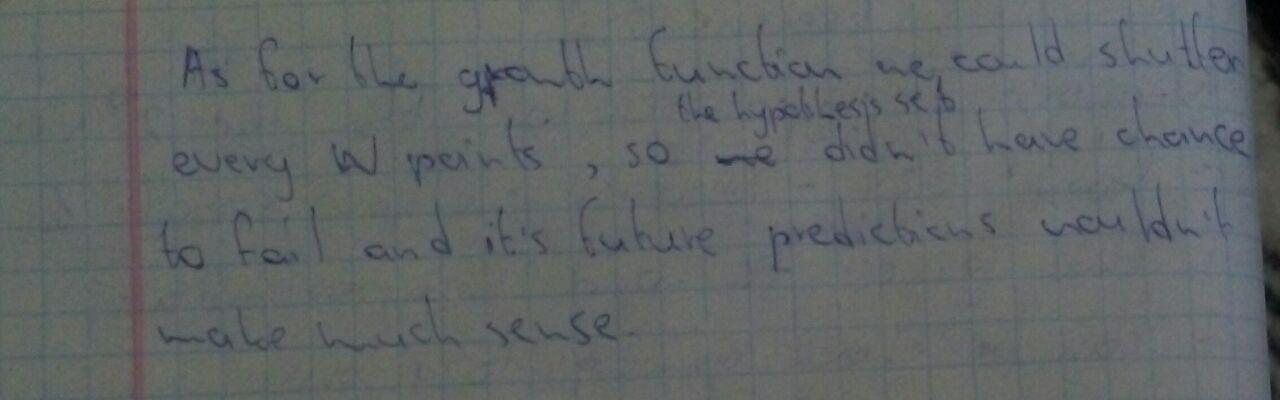 As for the growth function we could shutter
the hypothesis set
every N points, so we didn't have chance
to fail and it's future predictions wouldn't
make much sense.